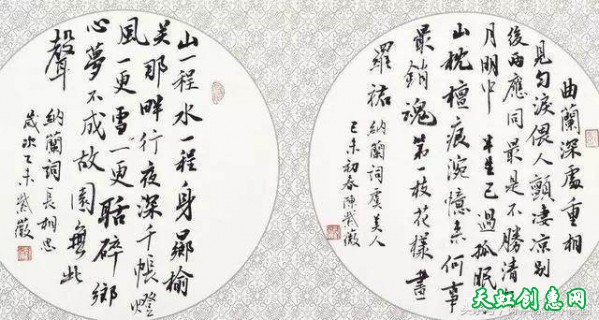 曲蘭深處重相
見勻淚偎人顫凄涼別
後兩應同最是不勝清
月明中 半生已過孤眠
山枕檀痕涴憶來何事
最銷魂第一枝花樣畫
羅裙 納蘭詞虞美人
乙未初春陳紫薇
山一程水一程身鄉榆
關那畔行夜深千帳燈
風一更雪一更聒碎鄉
心夢不成故園無此
聲 納蘭詞長相思
歲次乙未紫薇
天虹创意网